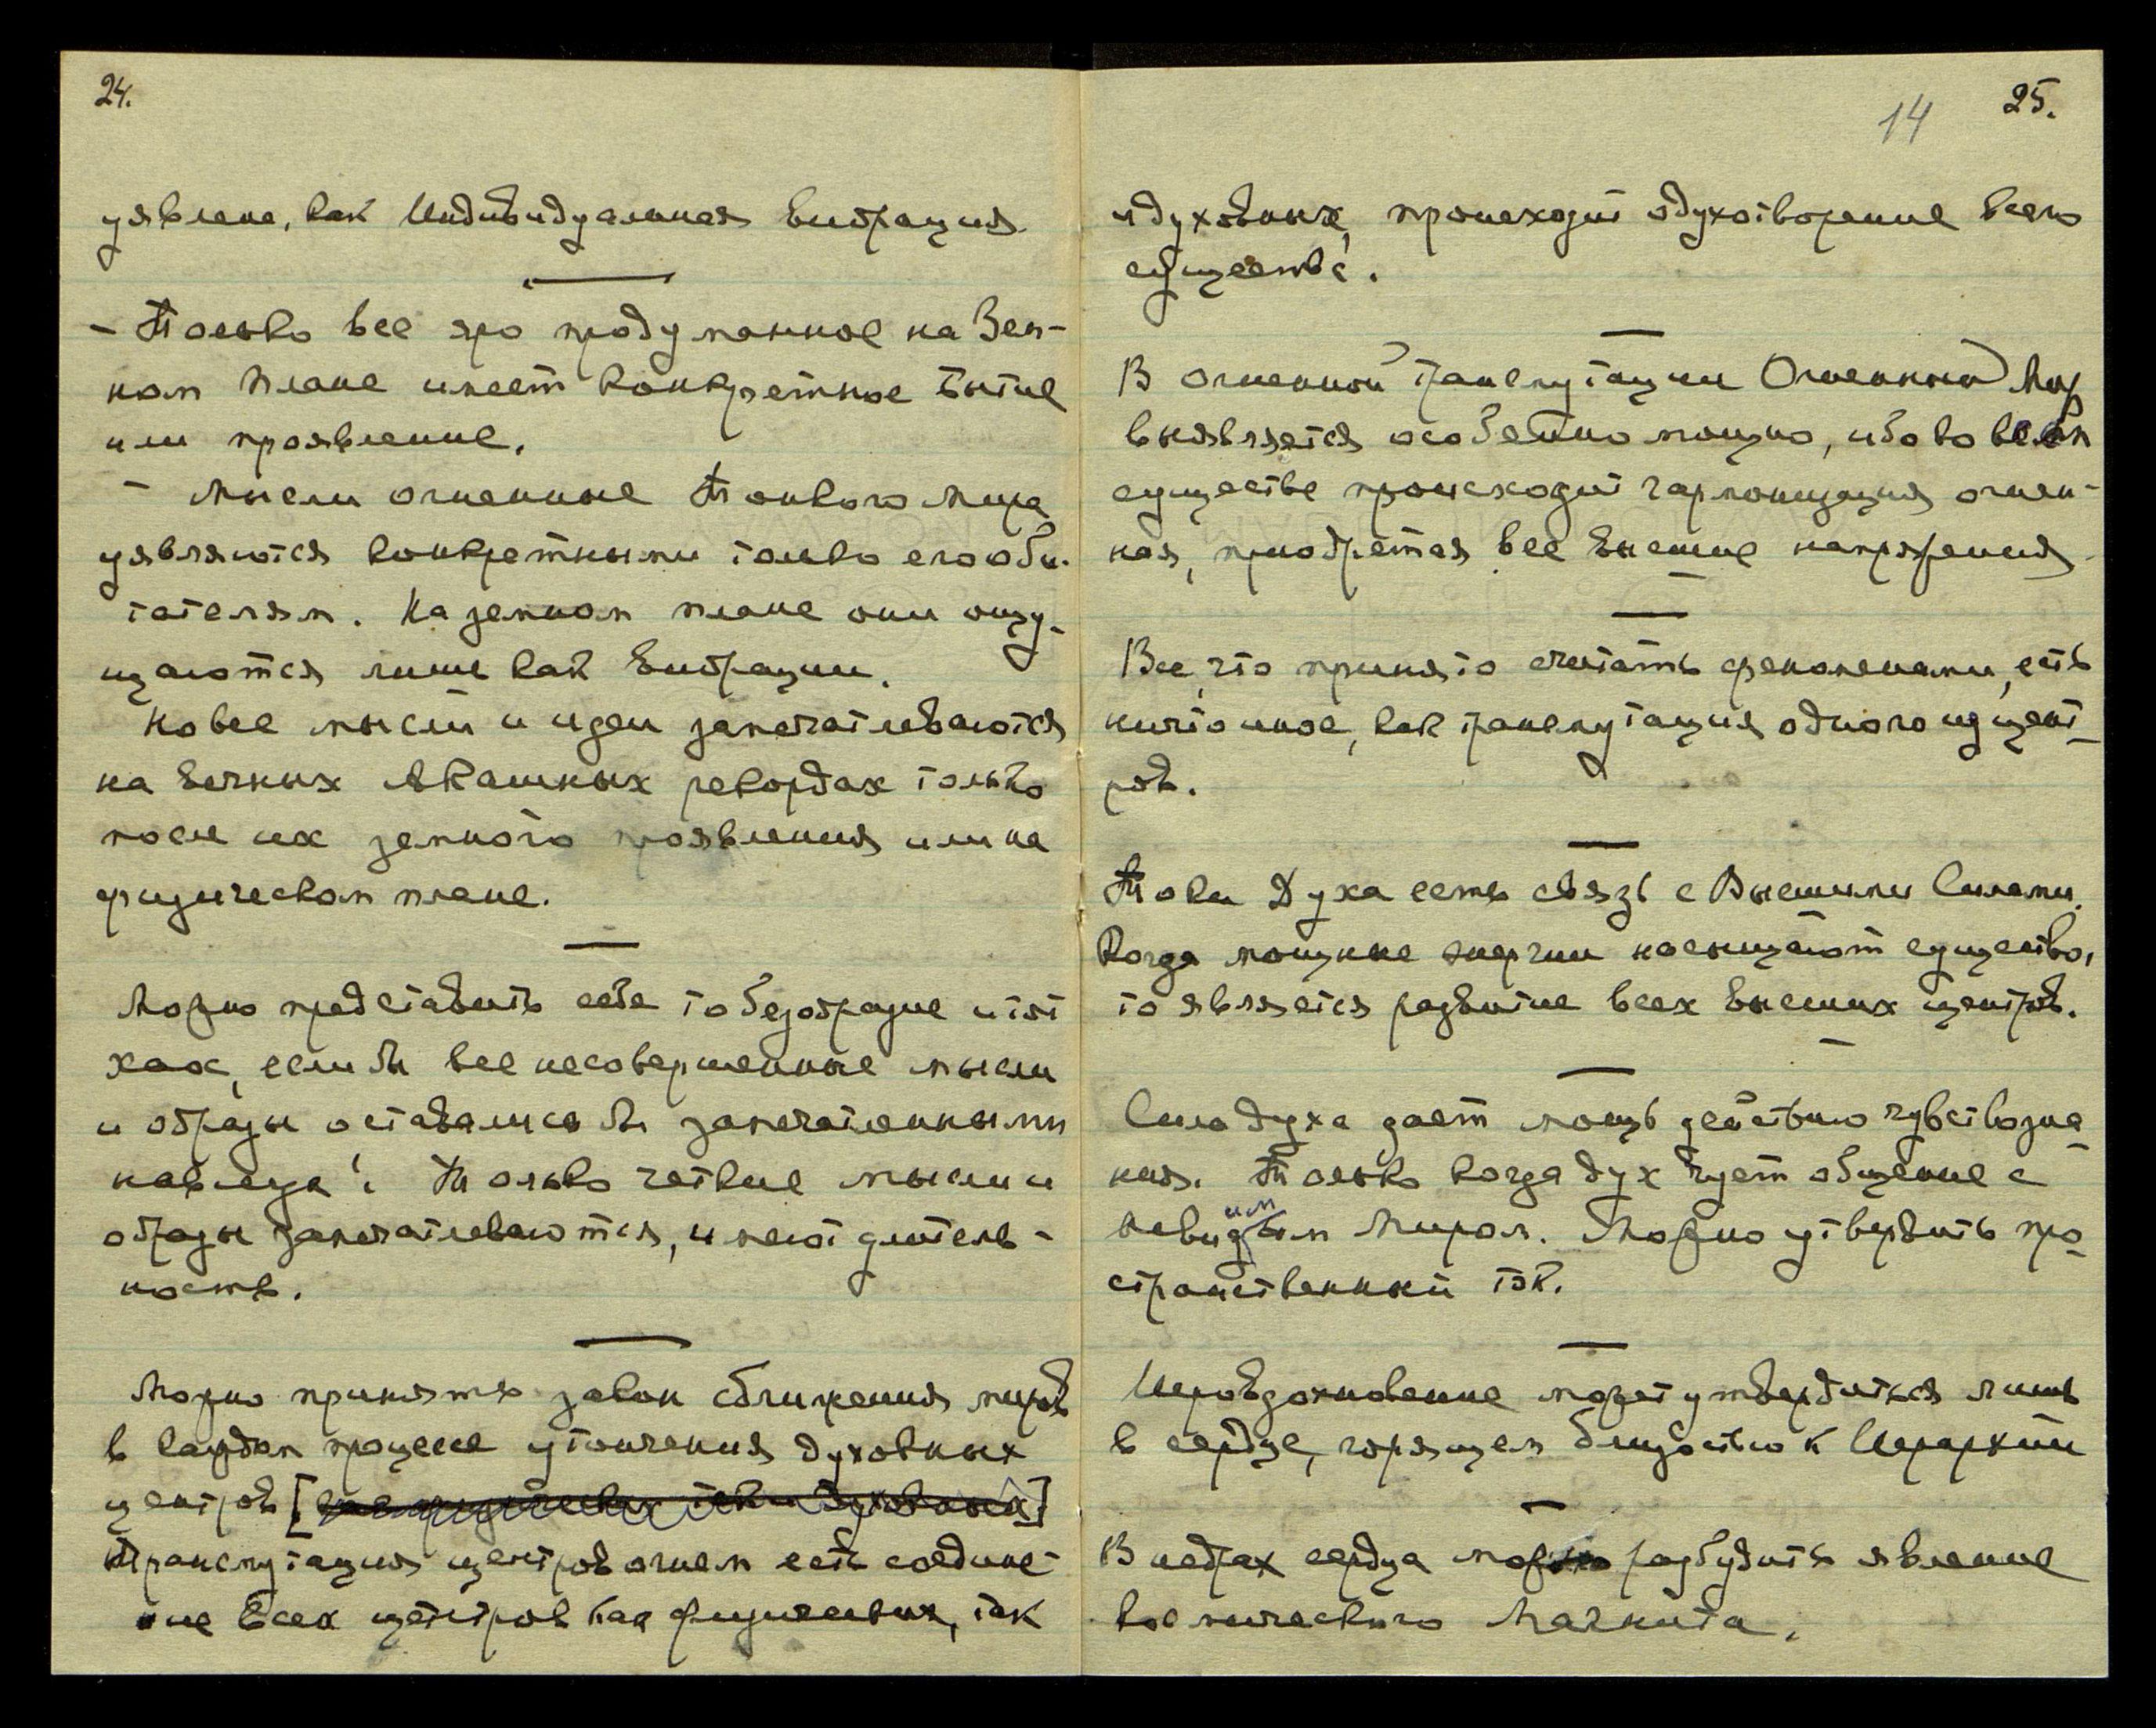 24.
уявлена, как Индивидуальная вибрация.
- Только все яро продуманное на Зем-
ном плане имеет конкретное бытие
или проявление.
- Мысли огненные Тонкого Мира
уявляются конкретными только его оби-
тателям. На земном плане они ощу-
щаются лишь как вибрации.
Но все мысли и идеи запечатлеваются
на вечных Акашных рекордах только
после их земного проявления или на
физическом плане.
Можно представить себе то безобразие и тот
хаос, если бы все несовершенные мысли
и образы оставались бы запечатленными
навсегда! Только четкие мысли и
образы запечатлеваются, имеют длитель-
ность.
Можно принять закон сближения миров
в каждом процессе утончения духовных
центров [
Трансмутация центров огнем есть соедине-
ние всех центров как физических, так
14 25.
и духовных, происходит одухотворение всего
существа.
В огненной трансмутации Огненный Мир
выявляется особенно мощно, ибо во всем
существе происходит гармонизация огнен-
ная, приобретая все высшие напряжения.
Все, что принято считать феноменами, есть
ничто иное, как трансмутация одного из цент-
ров.
Токи Духа есть связь с Высшими Силами.
Когда мощные энергии насыщают существо,
то является развитие всех высших центров.
Сила духа дает мощь действию чувствозна-
ния. Только когда дух чует общение с
невидимым Миром. Можно утвердить про-
странственный ток.
Иеровдохновение может утвердиться лишь
в сердце, горящем близостью к Иерархии
В недрах сердца можно разбудить явление
космического Магнита.